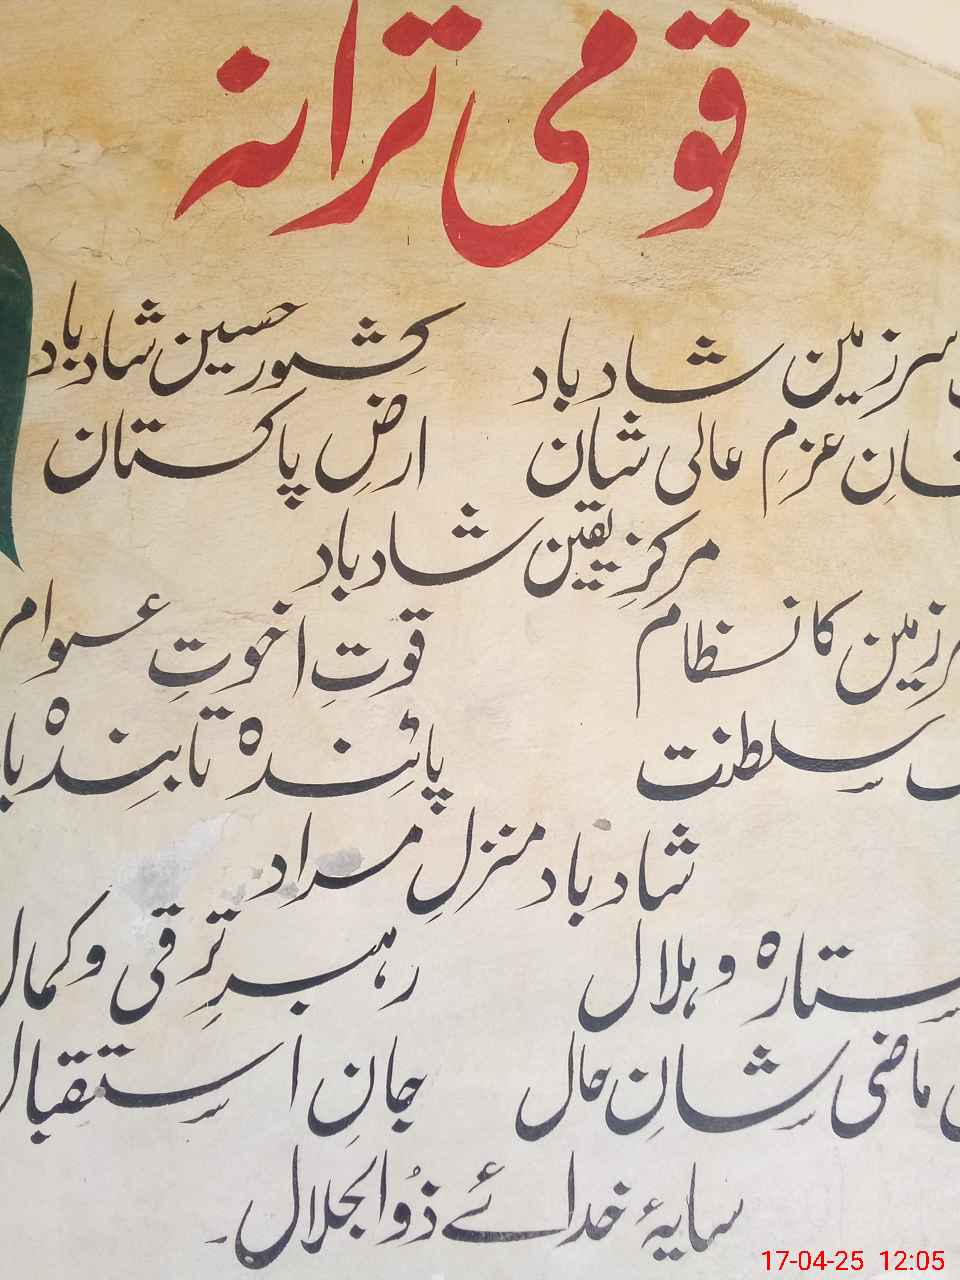 قومی ترانہ
سرزمین شاد باد کشور حسین شاد باد
عزمِ عالی شان ارضِ پاکستان
مرکزِ یقین شاد باد
کا نظام قوتِ اخوتِ عوام
سلطنت پائندہ تابندہ
شاد باد منزلِ مراد
ستارہ و ہلال رہبرِ ترقی و کمال
ماضی شانِ حال جانِ استقبال
سایۂ خدائے ذوالجلال۔
17-04-25 12:05